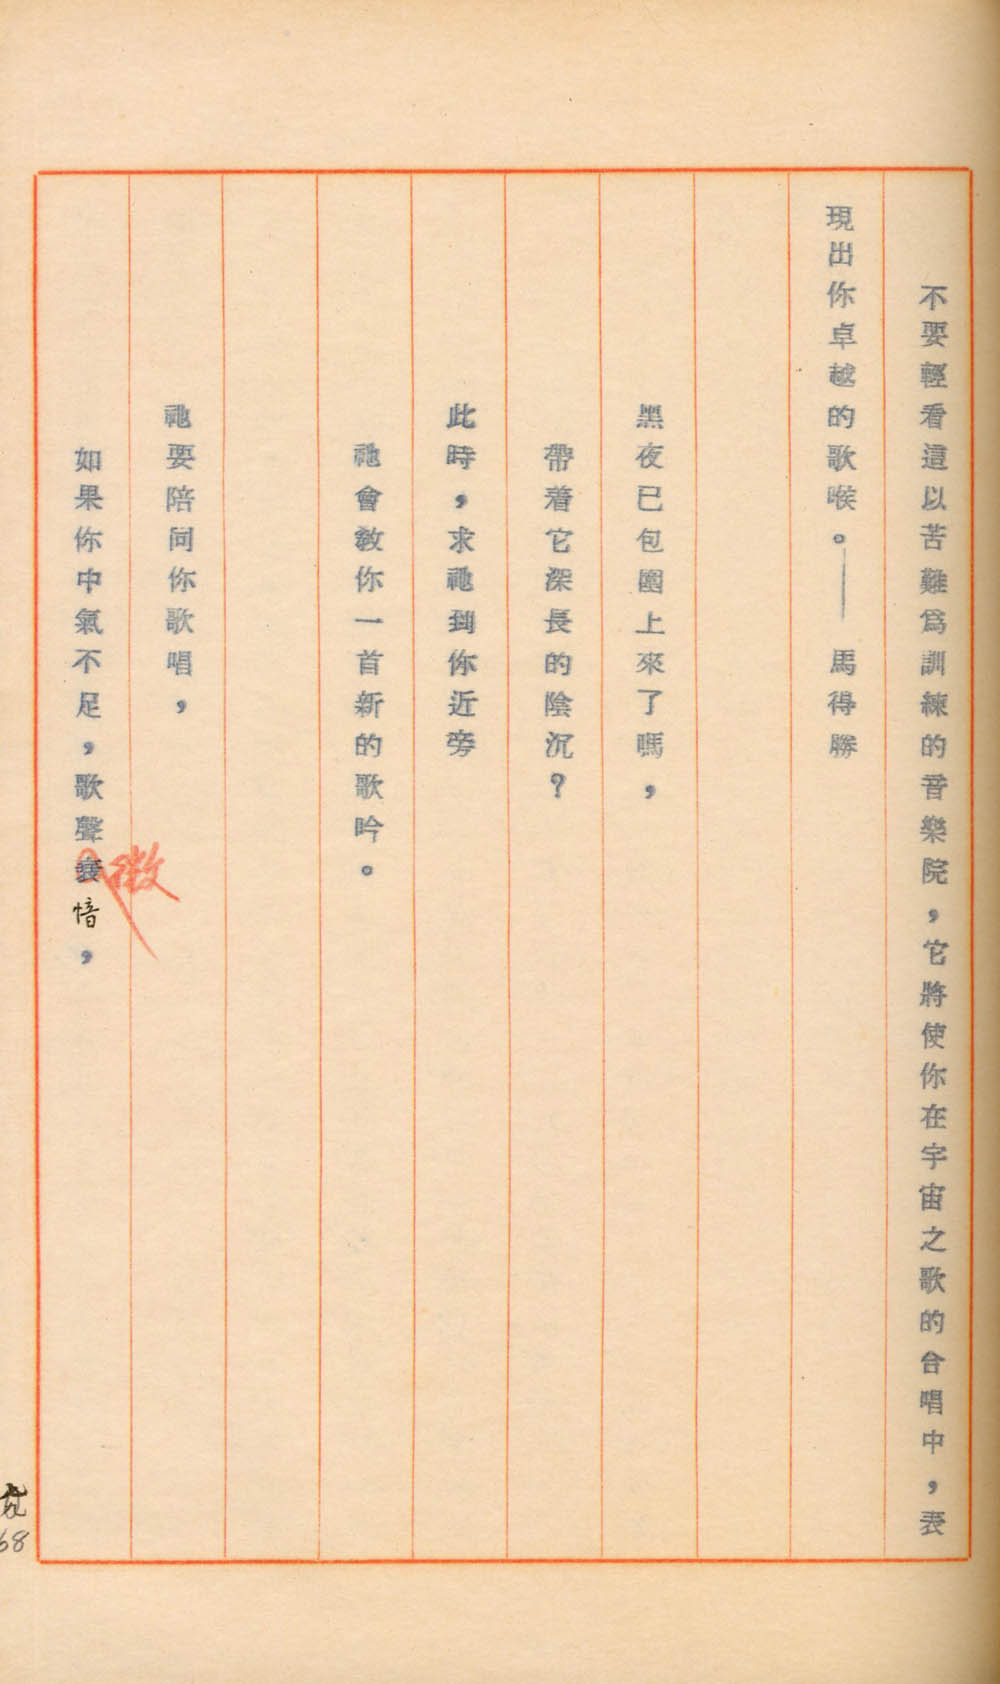 不要輕看這以苦難爲訓練的音樂院，它將使你在宇宙之歌的合唱中，表
現出你卓越的歌喉。——馬得勝
黑夜已包圍上來了嗎，
帶着它深長的陰沉？
此時，求祂到你近旁
祂會教你一首新的歌吟。
祂要陪同你歌唱，
如果你中氣不足，歌聲衰愔，
微
68